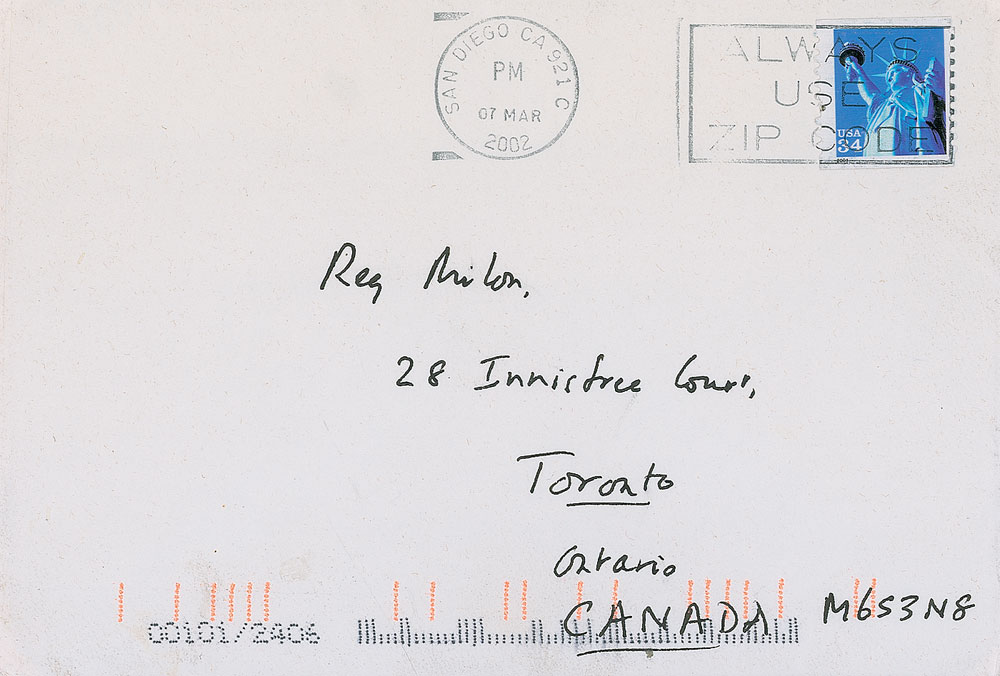 SAN DIEGO CA 921 C
PM
07 MAR
2002
ALWAYS
USE
ZIP CODE
USA
34
Reg
28 Innistree Court,
Toronto
Ontario
CANADA M6S3N8
00101/2406